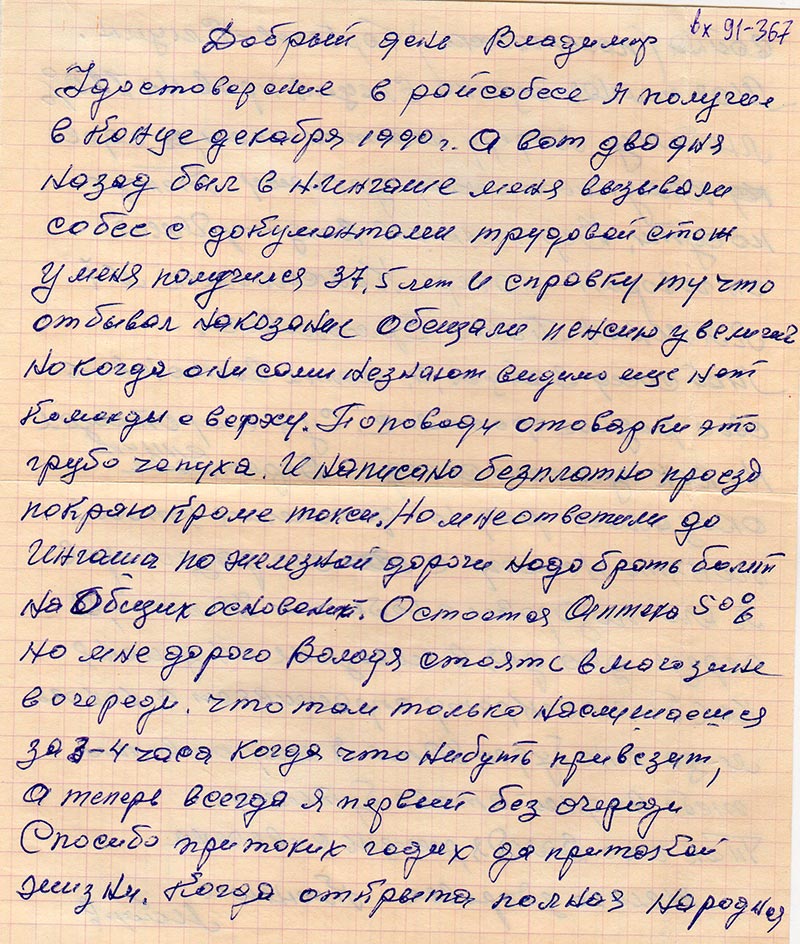 вх 91-367
Добрый день Владимир
Удостоверение в райсобесе я получил
в конце декабря 1990 г. А вот два дня
назад был в Н-Ингаше меня вызывали
собес с документами трудовой стаж
у меня получился 37,5 лет и справку ту что
отбывал наказание Обещали пенсию увелич
но когда они сами незнают видимо еще нет
Команды с верху. По поводу отоварки это
грубо чепуха. И написано безплатно проезд
по краю кроме такси. Но мне ответили до
Ингаша по железной дороги надо брать билет
на общих основаният. Остается Аптека 50%
но мне дорого Володя стоять в магазине
в очереди. что там только наслушаешся
за 3-4 часа когда что нибуть привезут,
А теперь всегда я первый без очереди
Спосибо при таких годах да при такой
жизни. Когда открыта полная народная